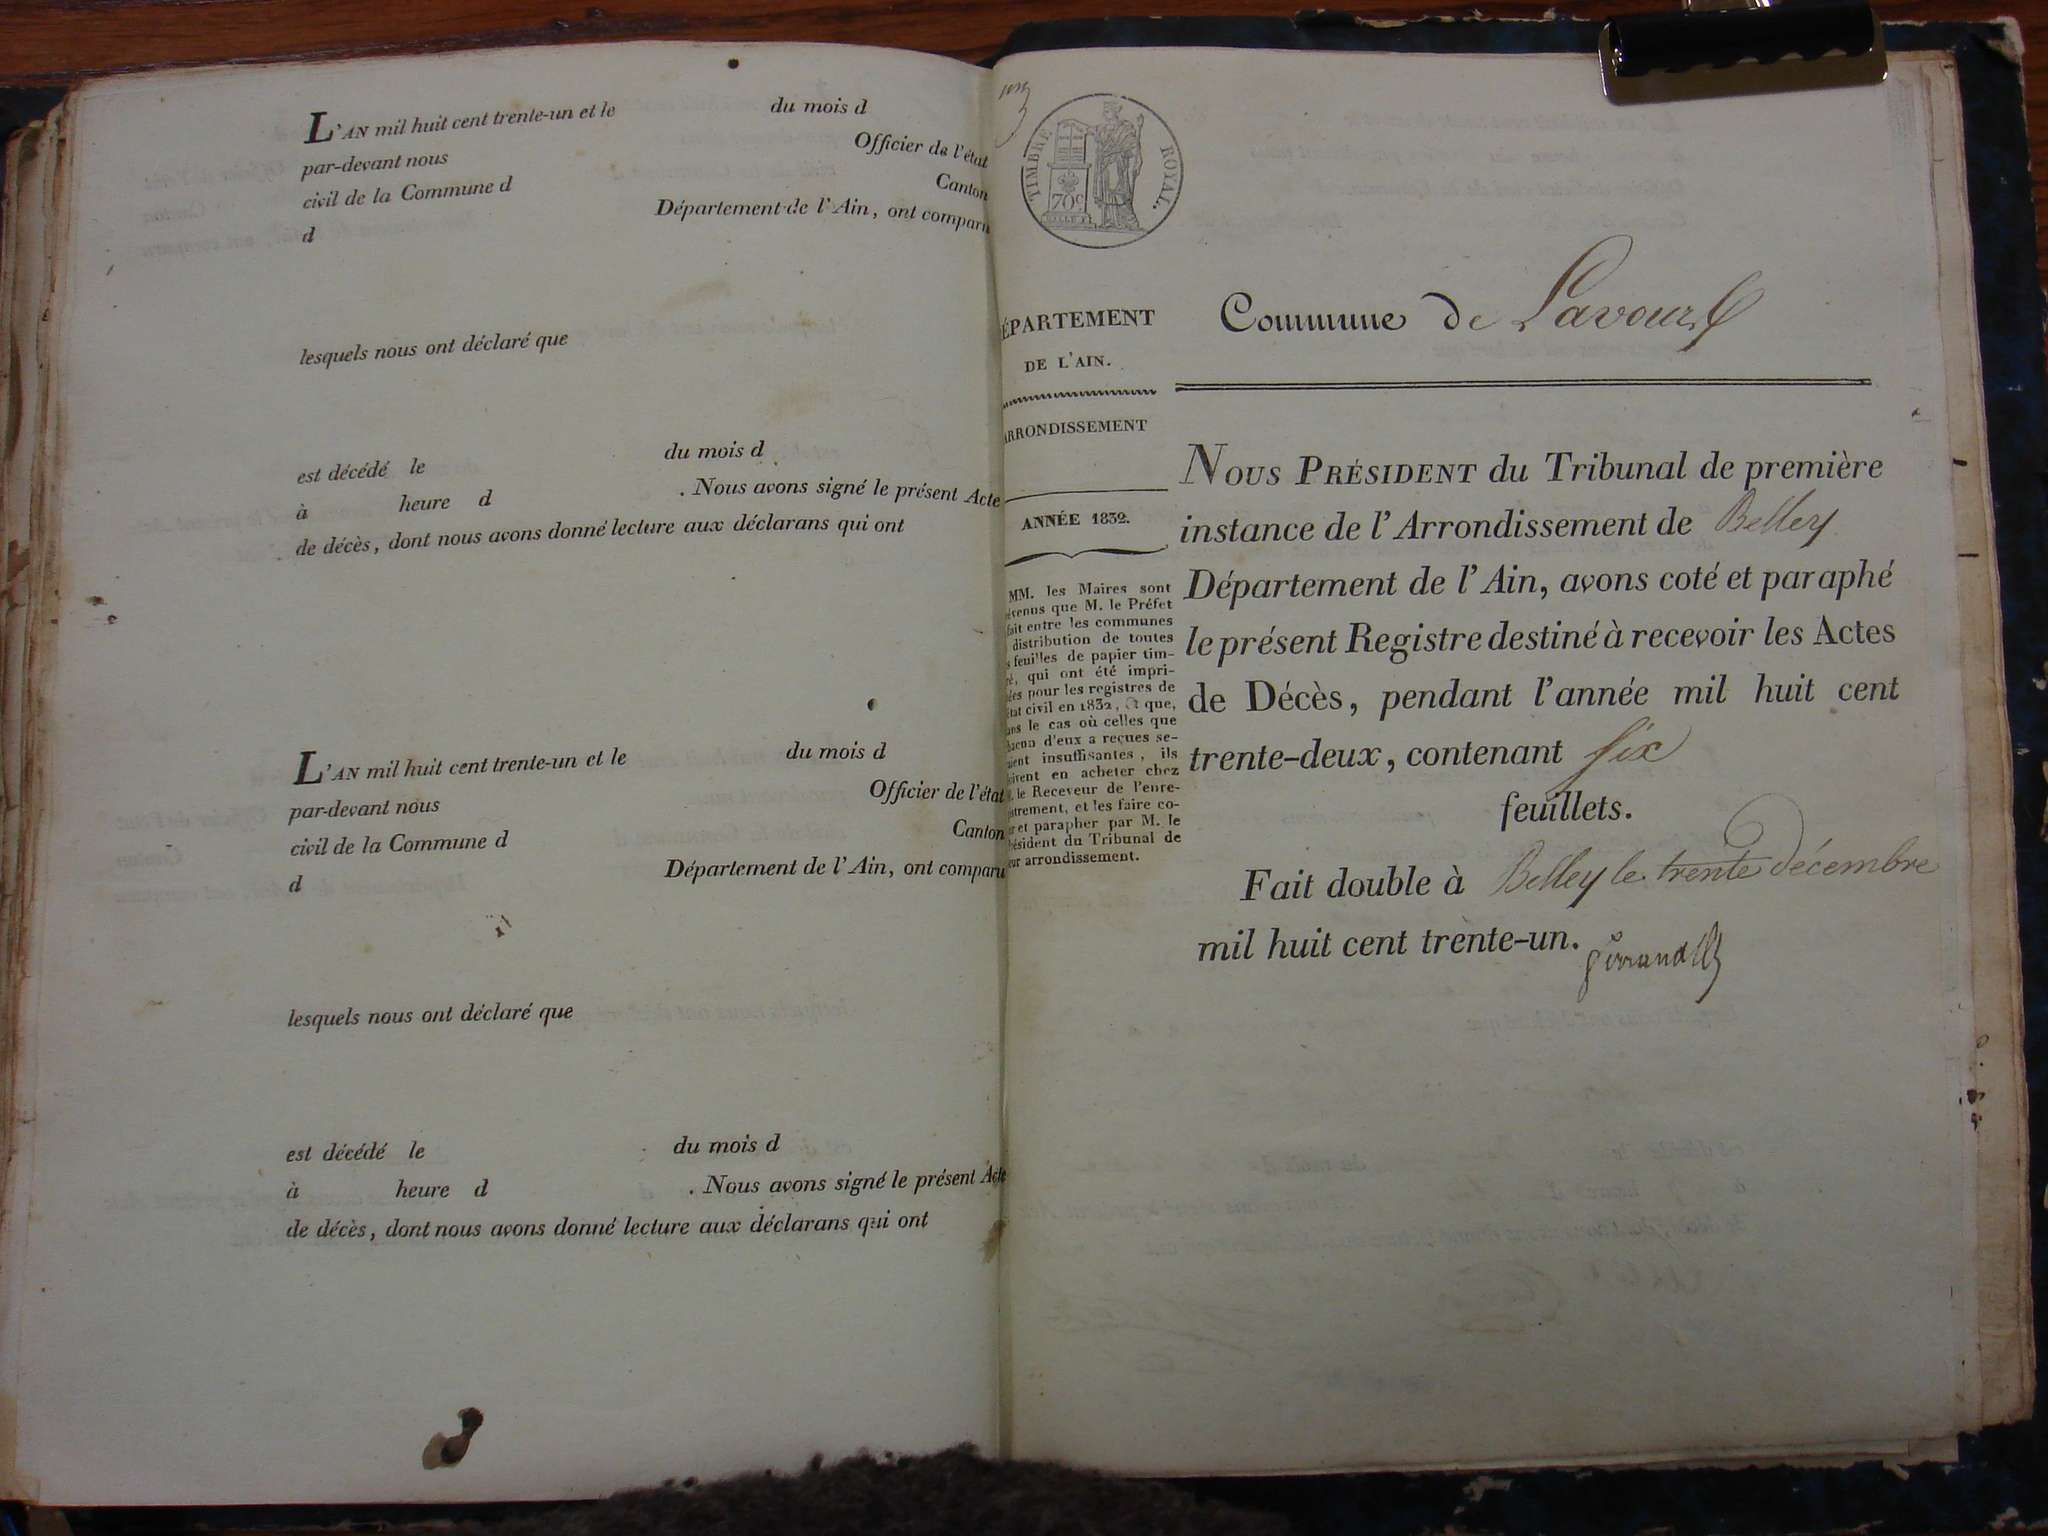 L'AN mil huit cent trente-un et le du mois d
par-devant nous Officier de l'état
civil de la Commune d Canton
d Département de l'Ain, ont comparu
lesquels nous ont déclaré que
est décédé le du mois d
à heure d . Nous avons signé le présent Acte
de décès, dont nous avons donné lecture aux déclarans qui ont
L'AN mil huit cent trente-un et le du mois d
par-devant nous Officier de l'état
civil de la Commune d Canton
d Département de l'Ain, ont comparu
lesquels nous ont déclaré que
est décédé le du mois d
à heure d . Nous avons signé le présent Acte
de décès, dont nous avons donné lecture aux déclarans qui ont
TIMBRE ROYAL.
70c
ÉPARTEMENT
DE L'AIN.
ARRONDISSEMENT
ANNÉE 1832.
MM. les Maires sont
évenus que M. le Préfet
fait entre les communes
distribution de toutes
s feuilles de papier tim-
ré, qui ont été impri-
ées pour les registres de
état civil en 1832, et que,
ans le cas où celles que
hacun d'eux a reçues se-
aient insuffisantes, ils
oivent en acheter chez
. le Receveur de l'enre-
istrement, et les faire co-
er et parapher par M. le
résident du Tribunal de
eur arrondissement.
Commune de Lavours
NOUS PRÉSIDENT du Tribunal de première
instance de l'Arrondissement de Belley
Département de l'Ain, avons coté et paraphé
le présent Registre destiné à recevoir les Actes
de Décès, pendant l'année mil huit cent
trente-deux, contenant six
feuillets.
Fait double à Belley le trente décembre
mil huit cent trente-un.